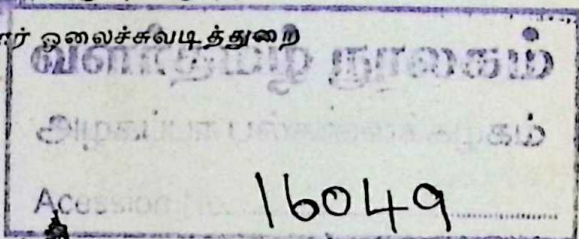 ர் ஓலைச்சுவடித்துறை
வளர்தமிழ் நூலகம்
அழகப்பா பல்கலைக்கழகம்
Acession No. 16049